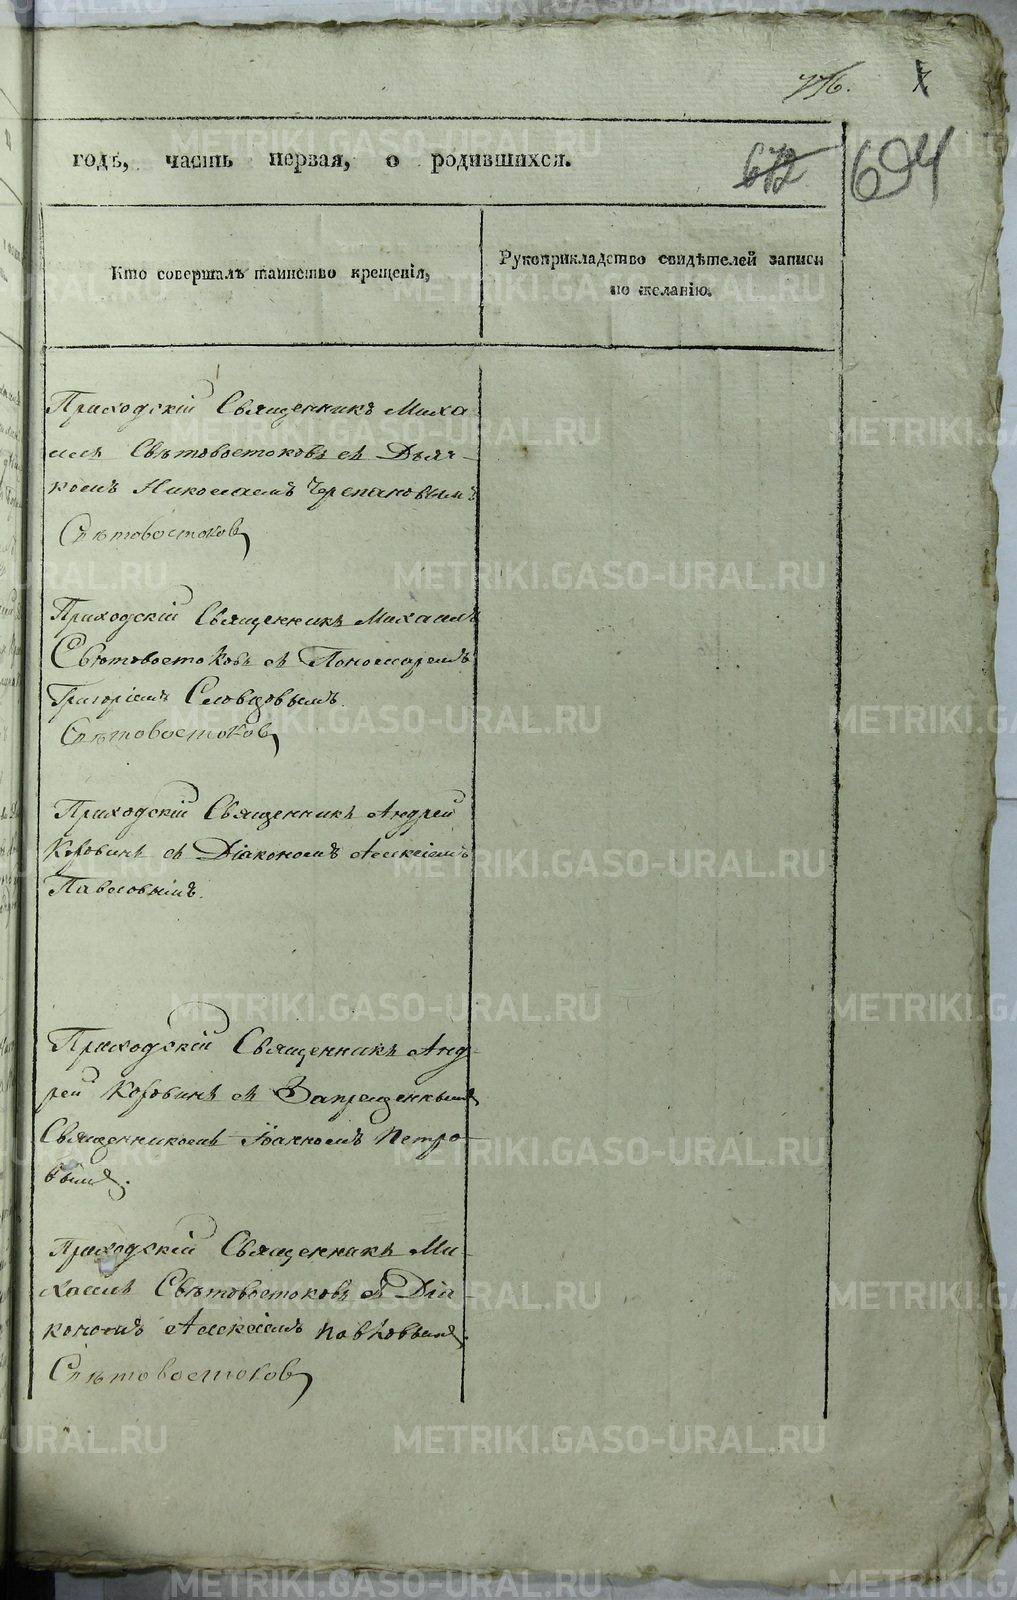 776.
годъ, часть первая, о родившихся.
672
694
Кто совершалъ таинство крещенія,
Рукоприкладство свидѣтелей записи
по желанію.
Приходскій Священникъ Миха-
илъ Свѣтовостоковъ съ Дьяч-
комъ Николаемъ Черепановымъ
Свѣтовостоковъ
Приходскій Священникъ Михаилъ
Свѣтовостоковъ съ Пономаремъ
Григоріемъ Словцовымъ.
Свѣтовостоковъ
Приходскій Священникъ Андрей
Коровинъ съ Діакономъ Алексіемъ
Приходскій Священникъ Анд-
рей Коровинъ съ Запрещеннымъ
Священникомъ Іоанномъ Петро-
вымъ.
Приходскій Священникъ Ми-
хаилъ Свѣтовостоковъ съ Діа-
кономъ Алексіемъ
Свѣтовостоковъ
METRIKI.GASO-URAL.RU